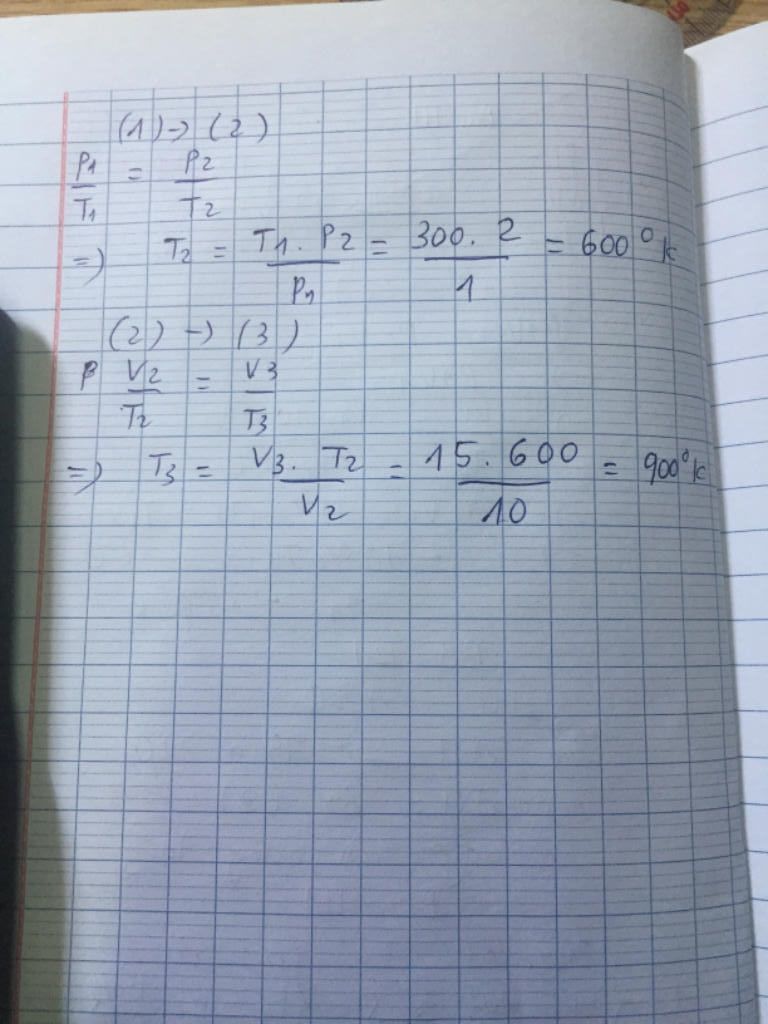 (1) → (2)
P1/T1 = P2/T2
=> T2 = T1. P2/P1 = 300. 2/1 = 600°K
(2) → (3)
V2/T2 = V3/T3
=> T3 = V3. T2/V2 = 15.600/10 = 900°K